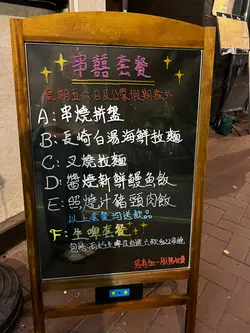 串囍套餐
星期五六日及公眾假期除外
A:串燒拼盤
B:長崎白湯海鮮拉麵
C:叉燒拉麵
D:醬燒新鮮鰻魚飯
E:照燒汁豬頸肉飯
以上套餐均送飲品
F:生啤套餐
另有加一服務費